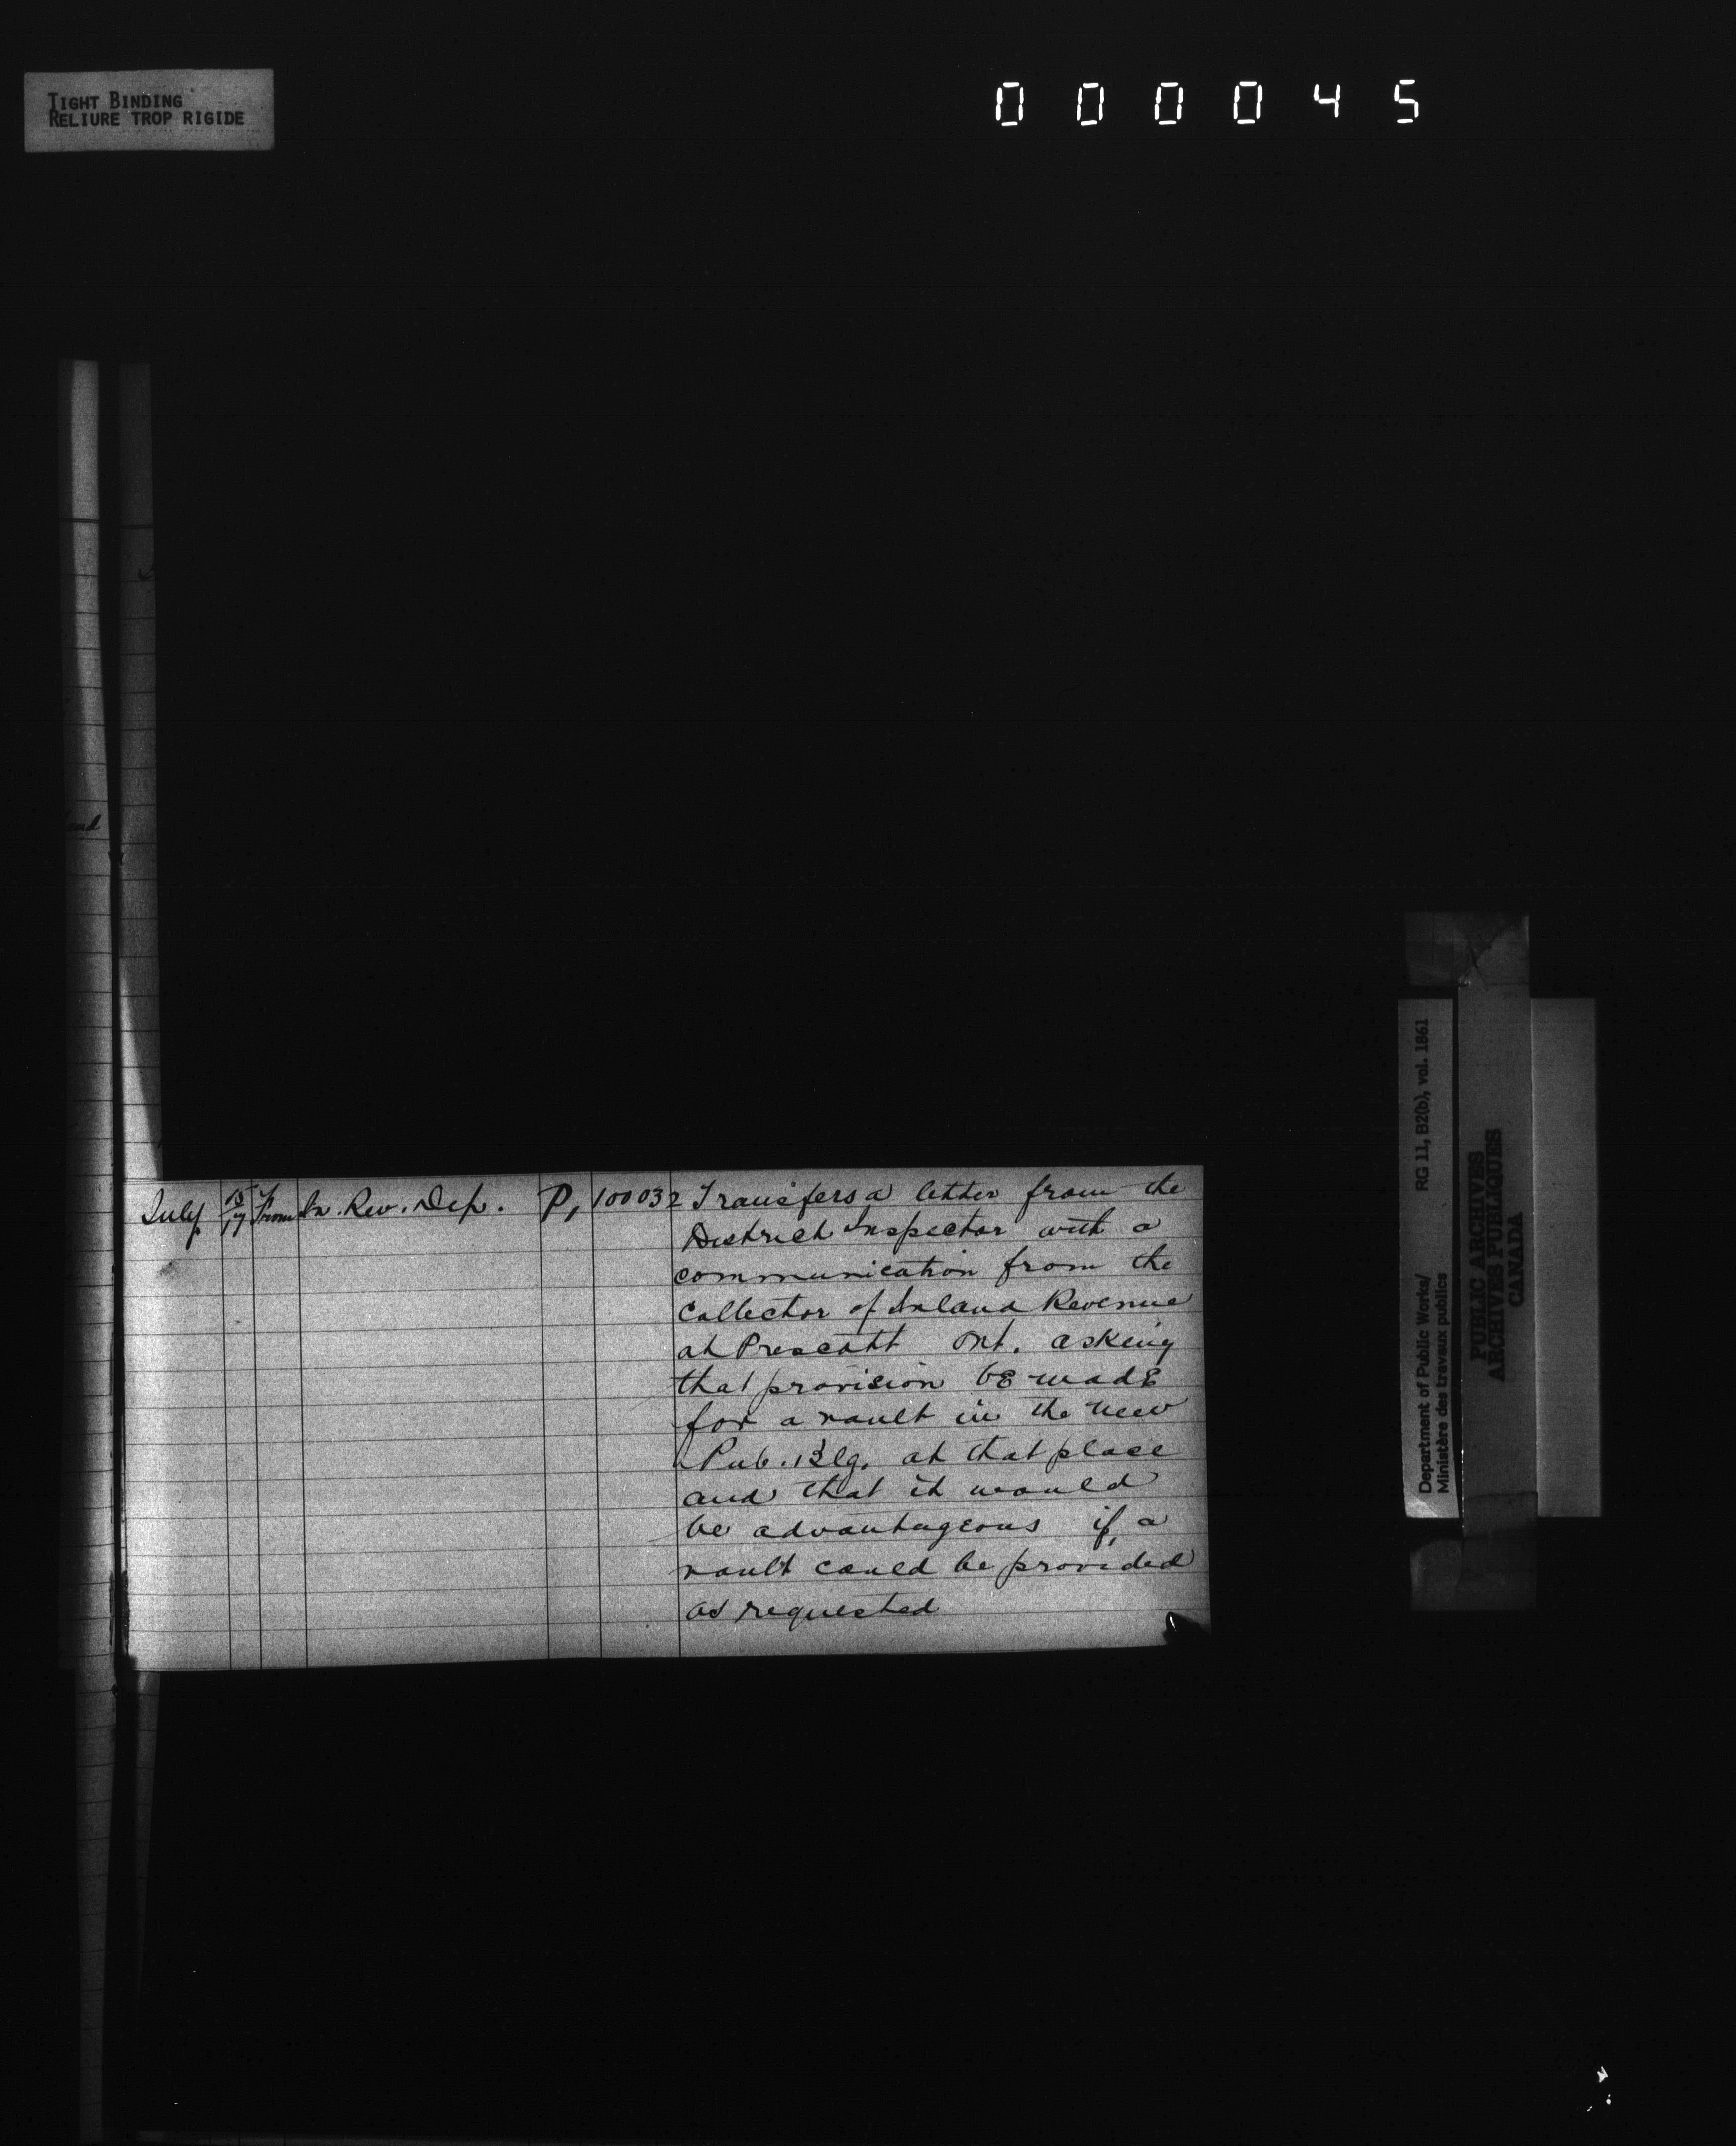 TIGHT BINDING
RELIURE TROP RIGIDE
000045
July 15/17 From In. Rev. Dep. P, 100032 Transfers a letter from the
District Inspector with a
communication from the
Collector of Inland Revenue
at Prescott Ont. asking
that provision be made
for a vault in the new
Pub. Blg. at that place
and that it would
be advantageous if a
vault could be provided
as requested
Department of Public Works/ RG 11, B2(b), vol. 1861
Ministère des travaux publics
PUBLIC ARCHIVES
ARCHIVES PUBLIQUES
CANADA